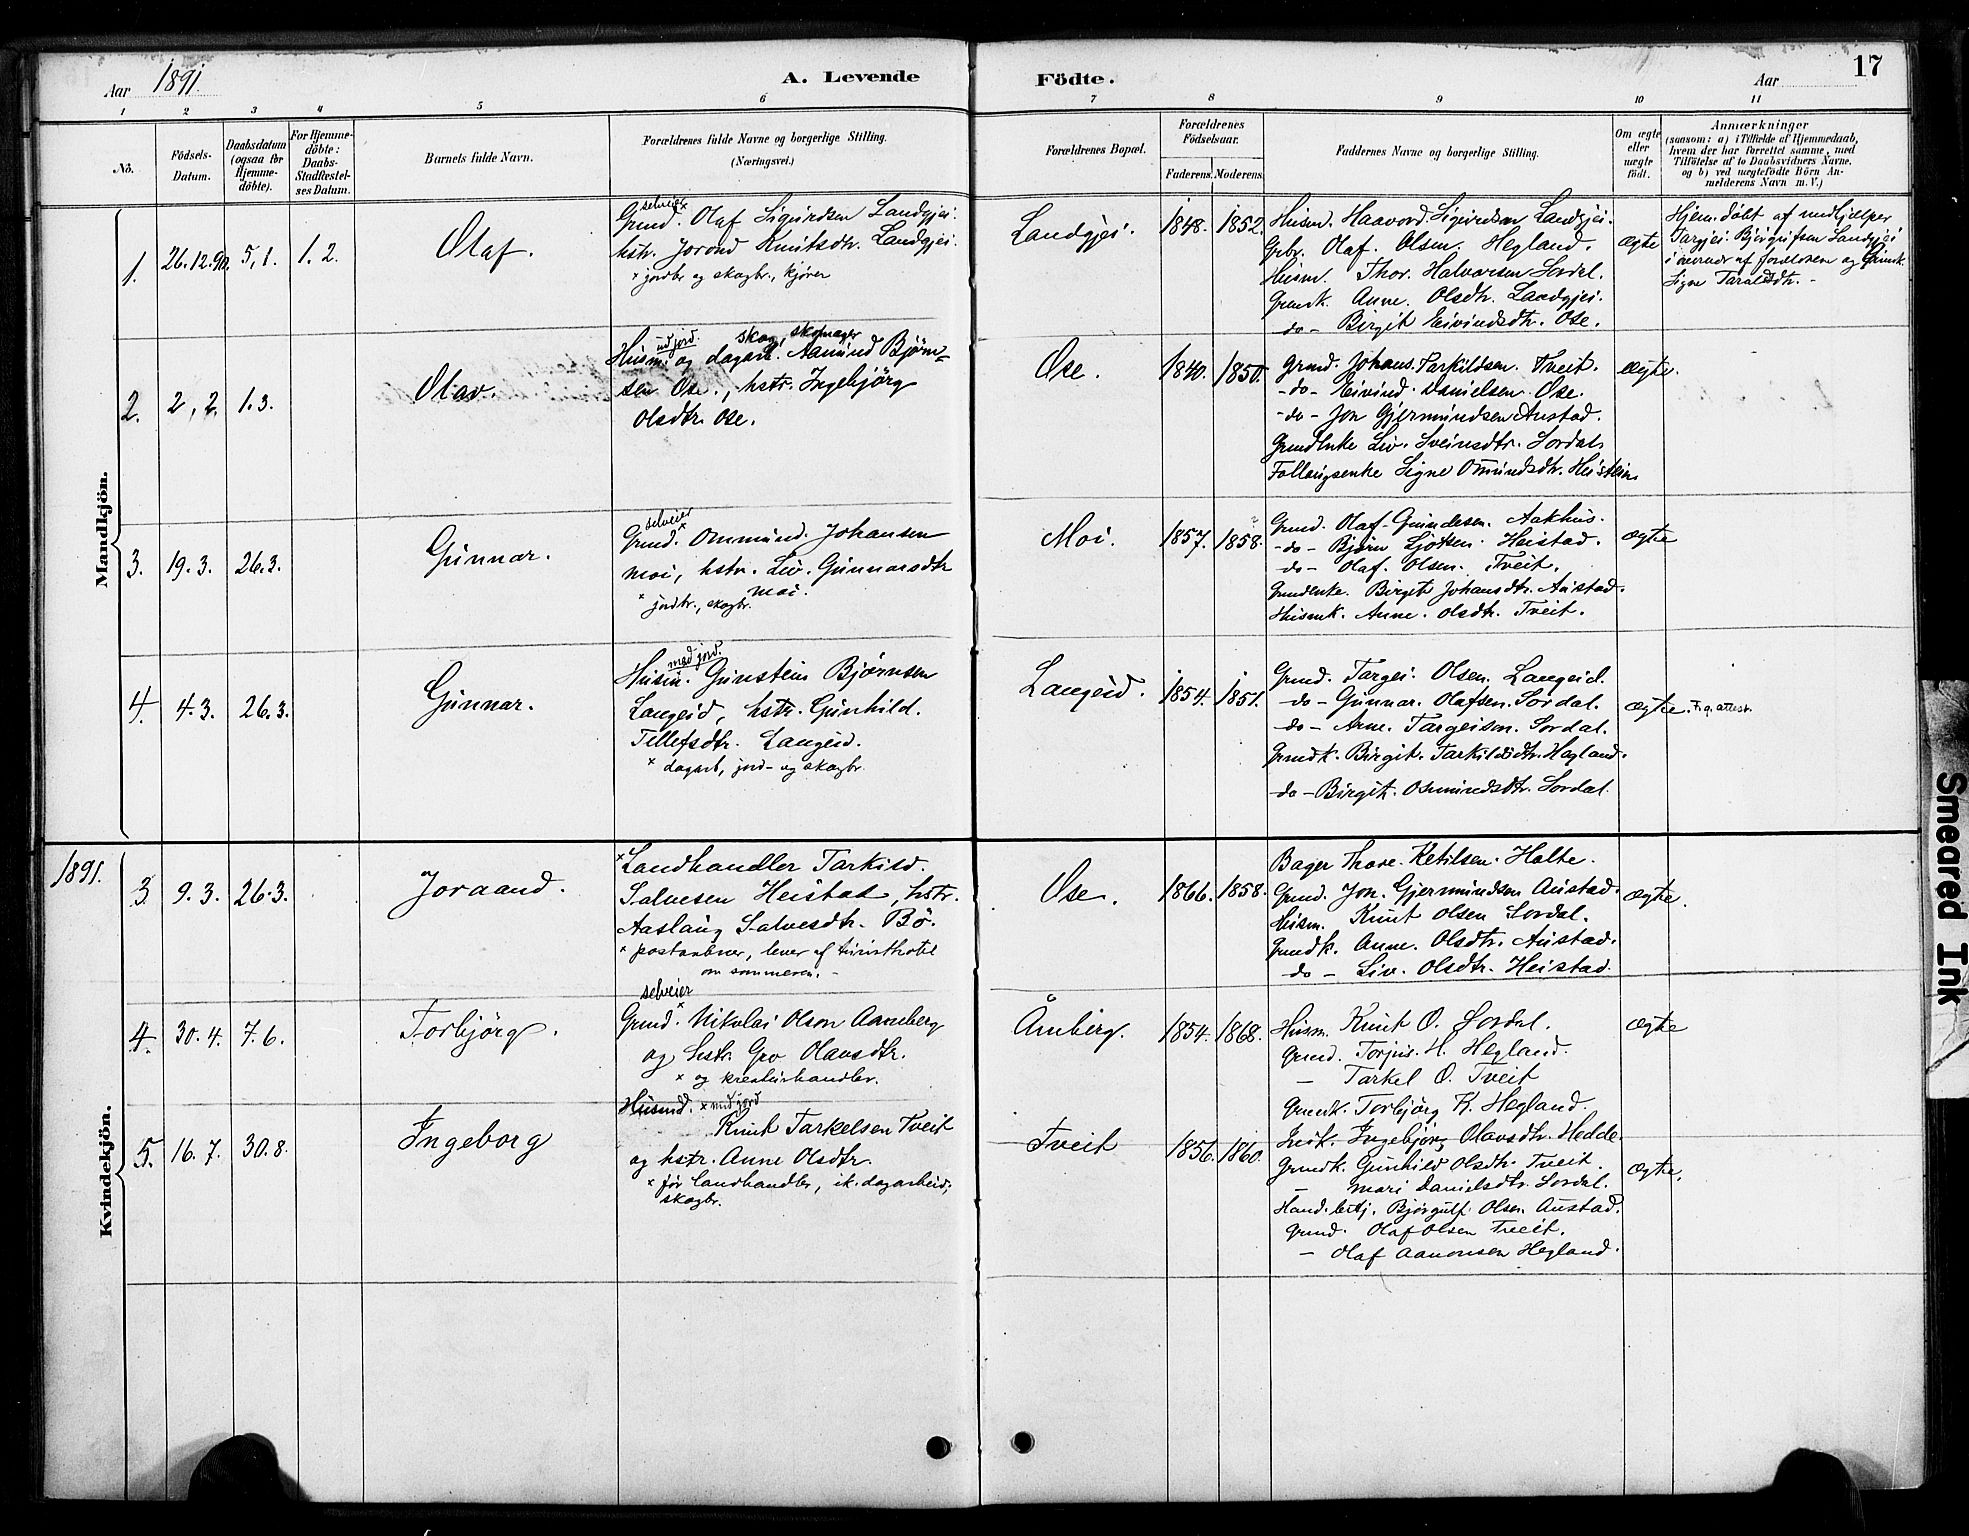 Aar 1891.
A. Levende
Födte.
Aar
17
1 2 3 4 5 6 7 8 9 10 11
No.
Födsels-Datum.
Daabsdatum (ogsaa for Hjemme-döbte).
For Hjemme-döbte: Daabs-Stadfæstel-ses Datum.
Barnets fulde Navn.
Forældrenes fulde Navne og borgerlige Stilling.
(Næringsvei.)
Forældrenes Bopæl.
Forældrenes Födselsaar.
Faderens. Moderens.
Faddernes Navne og borgerlige Stilling.
Om ægte eller uægte födt.
Anmærkninger
(saasom: a) i Tilfælde af Hjemmedaab,
hvem der har forrettet samme, med
Tilföielse af to Daabsvidners Navne,
og b) ved uægtefödte Börn An-
melderens Navn m. V.)
Mandkjön.
1. 26.12.90. 5,1. 1.2. Olaf.
selveier x
Grmd. Olaf Sigurdsen Landgjei.
hstr. Jorond Knutsdtr. Landgjei.
x jordbr og skogbr., kjører
Landgjei. 1848. 1852.
Husm. Haavord. Sigurdsen Landgjei.
Grbr. Olaf. Olsen. Hegland.
Husm. Thor. Halvorsen Sordal.
Grmdk. Anne. Olsdtr. Landgjei.
-do- Birgit Eivindsdtr. Ose.
ægte
Hjem. døbt af medhjælper
Targjei. Landgjei
i nærvær af forældrene og
Signe Taraldsdtr. -
2. 2,2. 1.3. Olav.
ud jord. skog, skomager
Husm. og dagarb. Aamund Bjørn-
sen Ose., hstr. Ingebjörg
Olsdtr Ose.
Ose. 1840. 1850.
Grmd. Johans. Tarkildsen. Tveit.
-do- Eivind. Danielsen. Ose.
-do- Jon Gjermundsen Austad.
Grmdenke Liv. Sveinsdtr. Sordal.
Follaugsenke Signe Omundsdtr.
ægte.
3. 19.3. 26.3. Gunnar.
selveier x
Grmd. Ommund. Johansen
Moi, hstr. Liv. Gunnarsdtr
Moi.
x jordbr., skogbr.
Moi. 1857. 1858.
Grmd. Olaf. Aakhus.
-do- Bjørn Ljotsen. Heistad.
-do- Olaf. Olsen. Tveit.
Grmdenke. Birgit Johansdtr. Austad.
Husmk. Anne. Olsdtr. Tveit.
ægte
4. 4.3. 26.3. Gunnar.
med jord.
Husm. Gunstein Bjørnsen
Langeid, hstr. Gunhild.
Tellefsdtr. Langeid.
x dagarb, jord- og skogbr.
Langeid. 1854. 1851.
Grmd. Targei. Olsen. Langeid.
-do- Gunnar. Olafsen. Sordal.
-do- Arne. Targeisen. Sordal.
Grmdk. Birgit. Tarkildsdtr. Hegland.
-do- Birgit. Osmundsdtr. Sordal.
ægte. F. g. attest.
Kvindekjön.
1891.
3 9.3. 26.3. Joraand.
x Landhandler Tarkild.
Salvesen Heistad, hstr.
Aaslaug Salvesdtr. Bö.
x postaabner, lever af turisthotel
om sommeren. -
Ose. 1866. 1858.
Bager Thore. Ketilsen. Holte.
Grmd. Jon. Gjermundsen Austad.
Husm. Knut Olsen Sordal.
Grmdk. Anne. Olsdtr. Austad.
do - Liv. Olsdtr. Heistad.
ægte.
4. 30.4. 7.6. Torbjörg.
selveier x
Grmd. Nikolai Olson Aamberg
og hstr. Gro Olavsdtr.
x og kreaturhandler.
Åmberg. 1854. 1868.
Husm. Knut O. Sordal.
Grmd. Torjus. H. Hegland.
- Tarkel O. Tveit
Grmdk. Torbjörg K. Hegland.
Ingebjörg Olavsdtr. Hedde.
ægte
5. 16.7. 30.8. Ingeborg
Husmd. x med jord
Knut Tarkelsen Tveit
og hstr. Anne Olsdtr.
x før landhandler, dagarbeid,
skogbr.
Tveit 1856. 1860.
Grmdk. Gunhild Olsdtr. Tveit.
- Mari Danielsdtr. Sordal.
Handelsbetj. Bjørgulf Olsen Austad.
Grmd. Olaf Olsen Tveit.
- Olaf Aanonsen Hegland.
ægte.
Smeared Ink